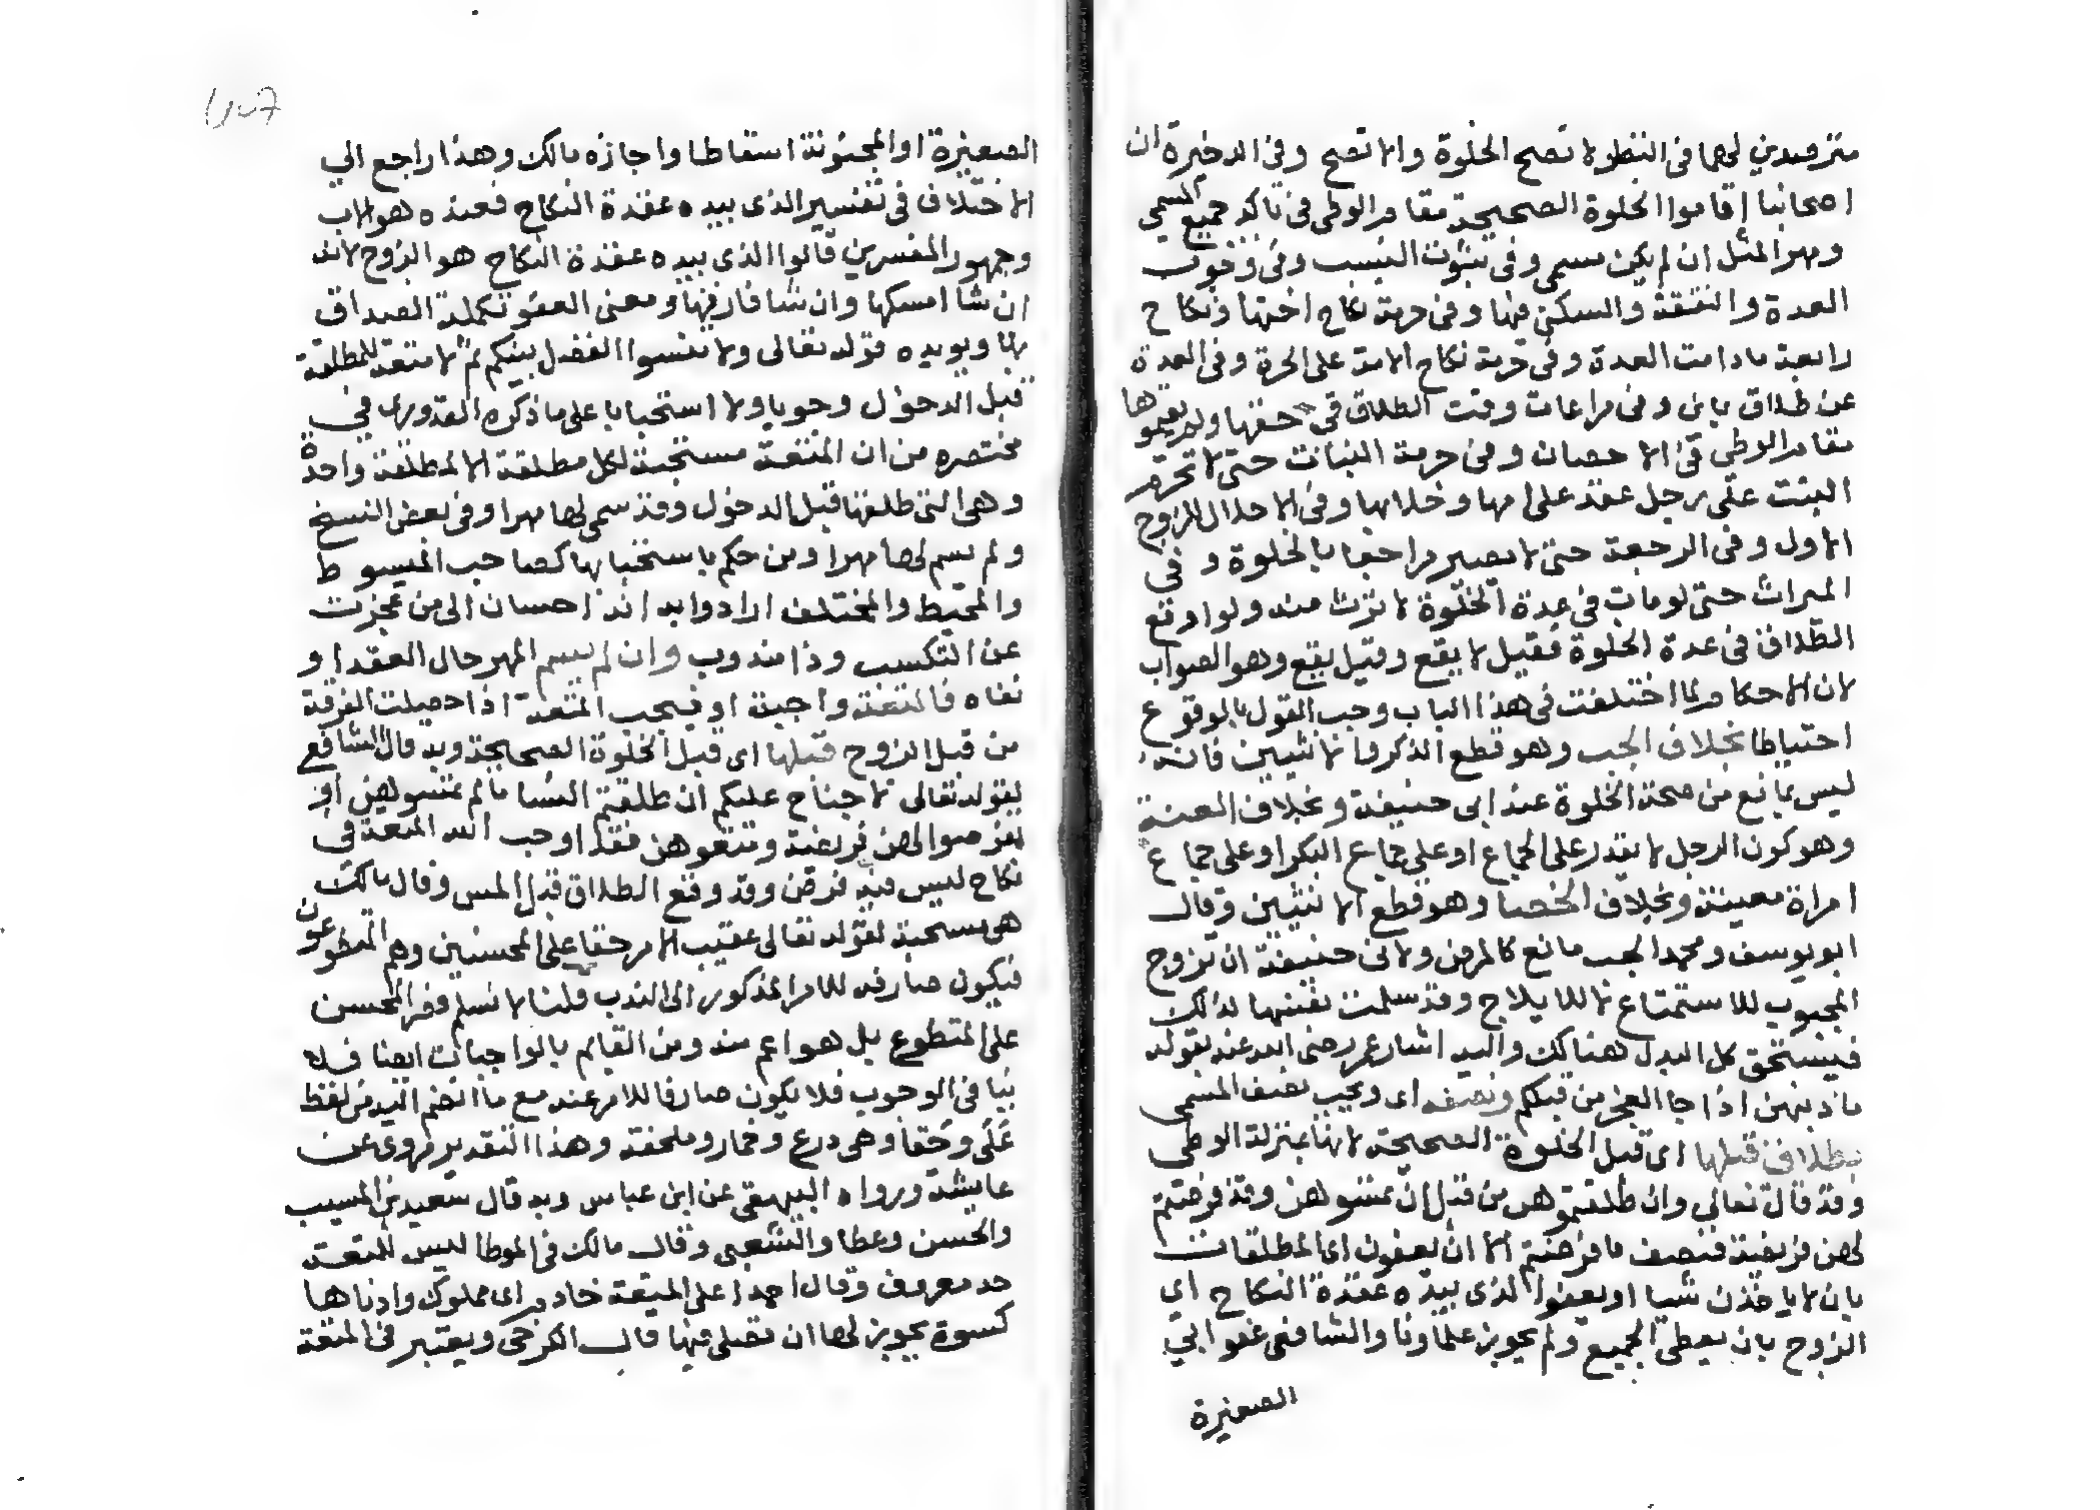 مترصدين لهما في النظر لا تصح الخلوة والا تصح وفي الذخيرة ان
اصحابنا اقاموا الخلوة الصحيحة مقام الوطي في تاكد جميع المسمى
ومهر المثل ان لم يكن مسمى وفي ثبوت النسب وفي وجوب
العدة والنفقة والسكنى فيها وفي حرمة نكاح اختها ونكاح
رابعة ما دامت العدة وفي حرمة نكاح الامة على الحرة وفي العدة
عن طلاق باين وفي مراعات وقت الطلاق في حقها ولم يقيموها
مقام الوطي في الاحصان وفي حرمة البنات حتى لا تحرم
البنت على رجل عقد على امها وخلا بها وفي الاحلال للزوج
الاول وفي الرجعة حتى لا يصير مراجعا بالخلوة وفي
الميراث حتى لو مات في عدة الخلوة لا ترث منه ولو اوقع
الطلاق في عدة الخلوة فقيل لا يقع وقيل يقع وهو الصواب
لان الاحكام لما اختلفت في هذا الباب وجب القول بالوقوع
احتياطا بخلاف الجب وهو قطع الذكر والانثيين فانه
ليس بمانع من صحة الخلوة عند ابي حنيفة وبخلاف العنة
وهو كون الرجل لا يقدر على الجماع او على جماع البكر او على جماع
امراة معينة وبخلاف الخصا وهو قطع الانثيين وقال
ابو يوسف ومحمد الجب مانع كالمرض ولابي حنيفة ان تزوج
المجبوب للاستمتاع لا للايلاج وقد سلمت نفسها لذلك
فيستحق كل البدل هنالك واليه اشار عمر رضي الله عنه بقوله
ما ذنبهن اذا جا العجز من قبلكم ونصفه اي ويجب نصف المسمى
بطلاق قبلها اي قبل الخلوة الصحيحة لانها بمنزلة الوطي
وقد قال تعالى وان طلقتموهن من قبل ان تمسوهن وقد فرضتم
لهن فريضة فنصف ما فرضتم الا ان يعفون اي المطلقات
بان لا ياخذن شيا او يعفوا الذي بيده عقدة النكاح اي
الزوج بان يعطي الجميع ولم يجوز علماونا والشافعي عفو ابي
الصغيرة
الصغيرة او المجنونة اسقاطا واجازه مالك وهذا راجع الي
الاختلاف في تفسير الذي بيده عقدة النكاح فعنده هو الاب
وجمهور المفسرين قالوا الذي بيده عقدة النكاح هو الزوج لانه
ان شا امسكها وان شا فارقها ومعنى العفو تكملة الصداق
لها ويويده قوله تعالى ولا تنسوا الفضل بينكم ثم لا متعة للمطلقة
قبل الدخول وجوبا ولا استحبابا على ما ذكره القدوري في
مختصره من ان المتعة مستحبة لكل مطلقة الا لمطلقة واحدة
وهي التي طلقها قبل الدخول وقد سمى لها مهرا وفي بعض النسخ
ولم يسم لها مهرا ومن حكم باستحبابها كصاحب المبسوط
والمحيط والمختلف ارادوا به انه احسان الى من عجزت
عن التكسب وذا مندوب وان لم يسم المهر حال العقد او
نفاه فالمتعة واجبة او فيجب المتعة اذا حصلت الفرقة
من قبل الزوج قبلها اي قبل الخلوة الصحيحة وبه قال الشافعي
لقوله تعالى لا جناح عليكم ان طلقتم النسا ما لم تمسوهن او
تفرضوا لهن فريضة ومتعوهن فقد اوجب الله المتعة في
نكاح ليس فيه فرض وقد وقع الطلاق قبل المس وقال مالك
هي مستحبة لقوله تعالى عقيب الامر حقا على المحسنين وهم المتطوعون
فيكون صارفه للامر المذكور الى الندب قلنا لا نسلم قصر المحسن
على المتطوع بل هو اعم منه ومن القايم بالواجبات ايضا فلا
ينافي الوجوب فلا يكون صارفا للامر عنه مع ما انضم اليه من لفظ
على وحقا وهي درع وخمار وملحفة وهذا التقدير مروي عن
عايشة ورواه البيهقي عن ابن عباس وبه قال سعيد بن المسيب
والحسن وعطا والشعبي وقال مالك في الموطا ليس للمتعة
حد معروف وقال احمد اعلى المتعة خادم اي مملوك وادناها
كسوة يجوز لها ان تصلي فيها قال الكرخي ويعتبر في المتعة